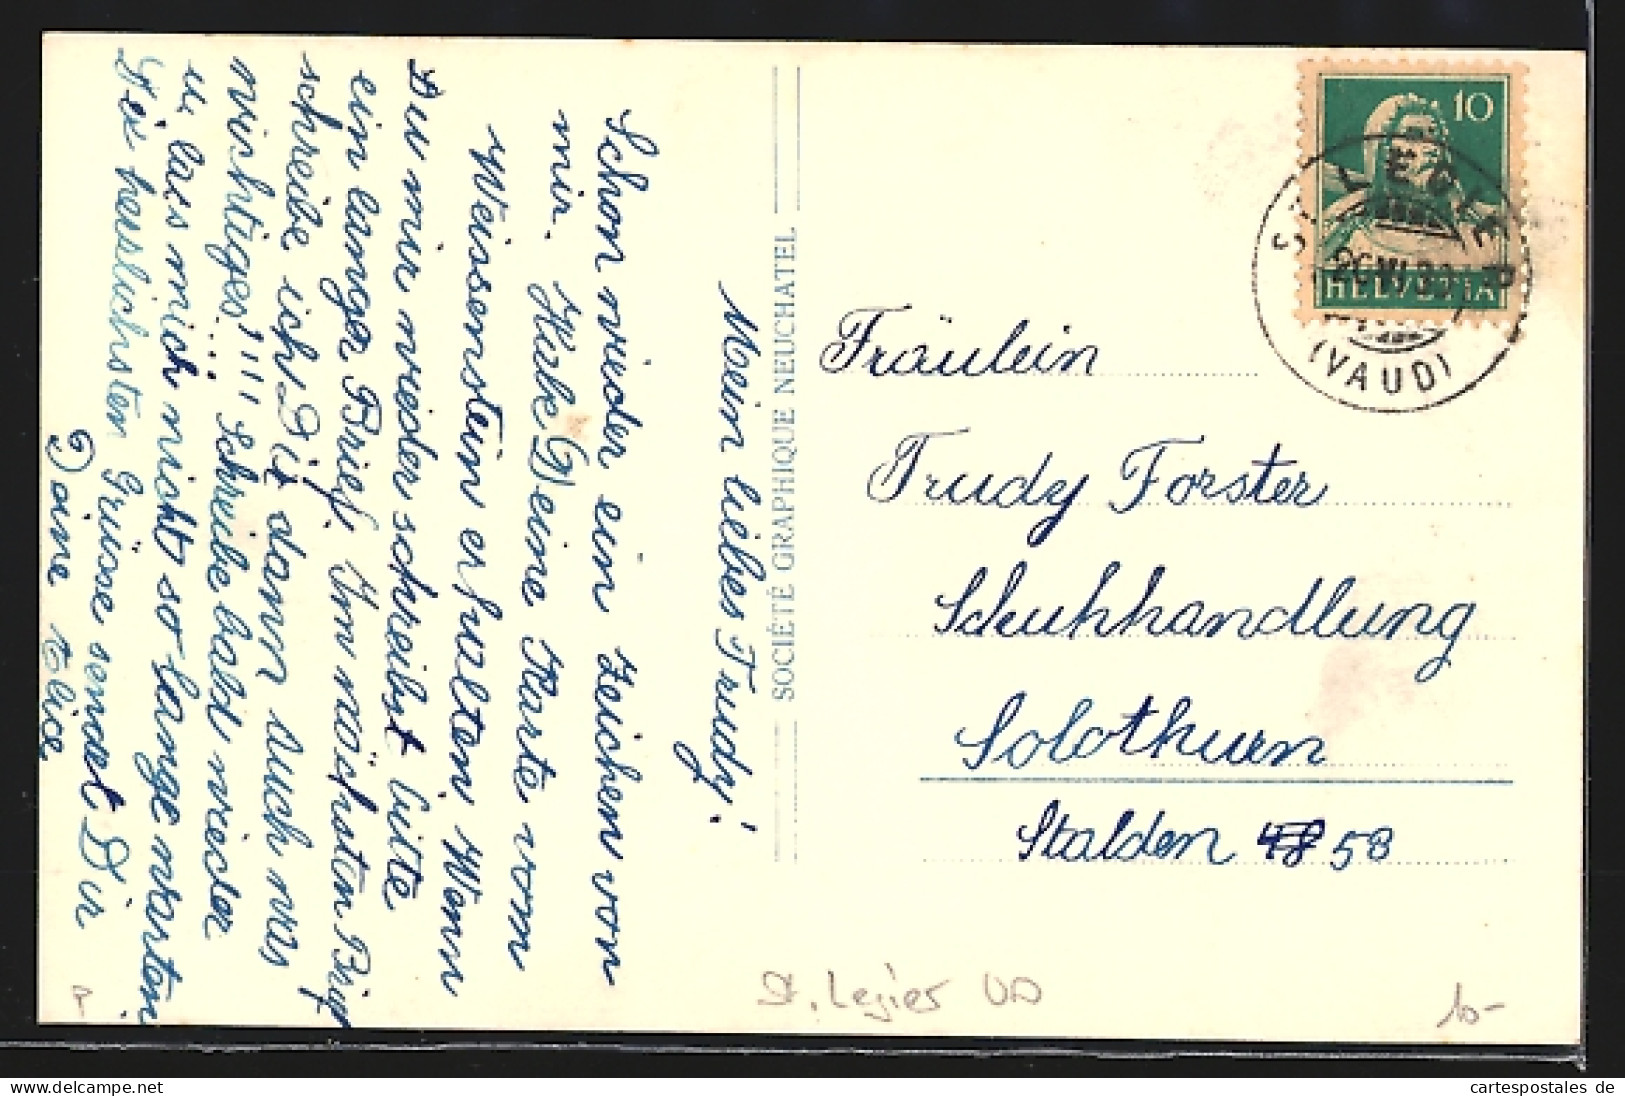 Mein liebes Trudy!
Schon wieder ein Zeichen von
mir. Habe Deine Karte vom
Weissenstein erhalten. Wenn
Du mir wieder schreibst bitte
ein langer Brief. Im nächsten Brief
schreibe ich Dir dann auch was
wichtiges!!!! Schreibe bald wieder
u. lass mich nicht so lange warten.
Die herzlichsten Grüsse sendet Dir
Deine Alice
SOCIÉTÉ GRAPHIQUE NEUCHATEL
10
HELVETIA
ST. LEGIER
(VAUD)
Fräulein
Trudy Forster
Schuhhandlung
Solothurn
Stalden 58
St. Legier VD
10-
cartespostales.de